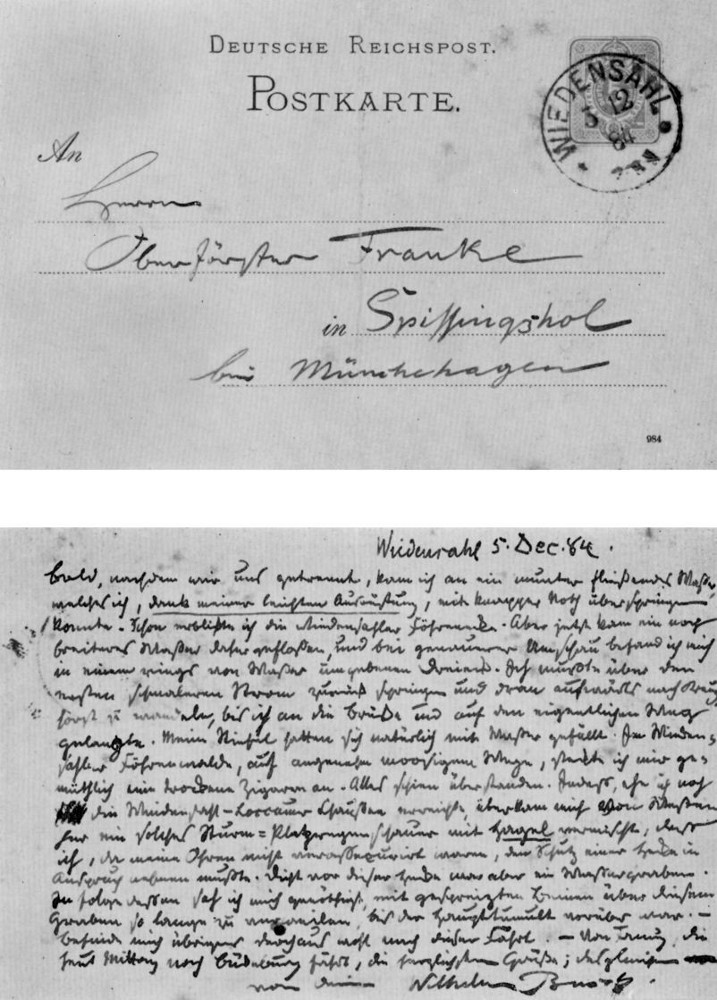 DEUTSCHE REICHSPOST.
POSTKARTE.
WIEDENSAHL
5 12
84
An
Herrn
Oberförster Franke
in Spissingshol
bei Münchehagen
984
Wiedensahl 5. Dec. 84.
Bald, nachdem wir uns getrennt, kam ich an ein munter fließendes Wasser,
welches ich, dank meiner leichten Ausrüstung, mit knapper Noth überspringen
konnte. Schon erblickte ich die Wiedensahler Föhren. Aber jetzt kam ein noch
breiteres Wasser daher geflossen, und bei genauerer Umschau befand ich mich
in einem rings von Wasser umgebenen Dreieck. Ich mußte über den
ersten schmaleren Strom zurück springen und dran aufwärts nach
zu wandeln, bis ich an die Brücke und auf den eigentlichen Weg
gelangte. Meine Stiefel hatten sich natürlich mit Wasser gefüllt. Im Wieden-
sahler Föhrenwalde, auf angenehm moosigem Wege, steckte ich mir ge-
müthlich eine trockene Zigarre an. Alles schien überstanden. Indeß, ehe ich noch
die Wiedensahl-Loccumer Chaussee erreichte, überkam mich von Westen
her ein solches Sturm= Platzregenschauer mit Hagel vermischt, daß
ich, da meine Ohren nicht waren, den Schutz einer Hecke in
Anspruch nehmen mußte. Dicht vor dieser Hecke war aber ein Wassergraben.
In folge dessen sah ich mich genöthigt, mit gespreizten Beinen über diesem
Graben so lange zu verweilen, bis der Haupttumult vorüber war. –
Befinde mich übrigens durchaus wohl nach dieser Fahrt. – Von die
heut Mittag nach Bückeburg fährt, die herzlichsten Grüße; desgleichen
von deinem Wilhelm Busch.